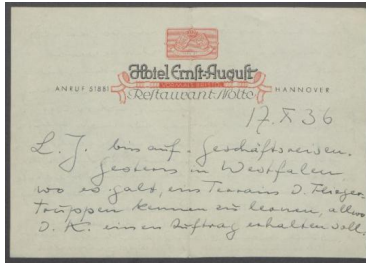 Hotel Ernst-August
ANRUF 51881
HANNOVER
Restaurant Nolte
17. X 36
L. J. bin auf Geschäftsreisen.
Gestern in Westfalen
wo es galt, ein Terrain d. Flieger-
truppen kennen zu lernen, allwo
D. K. einen Auftrag erhalten soll.